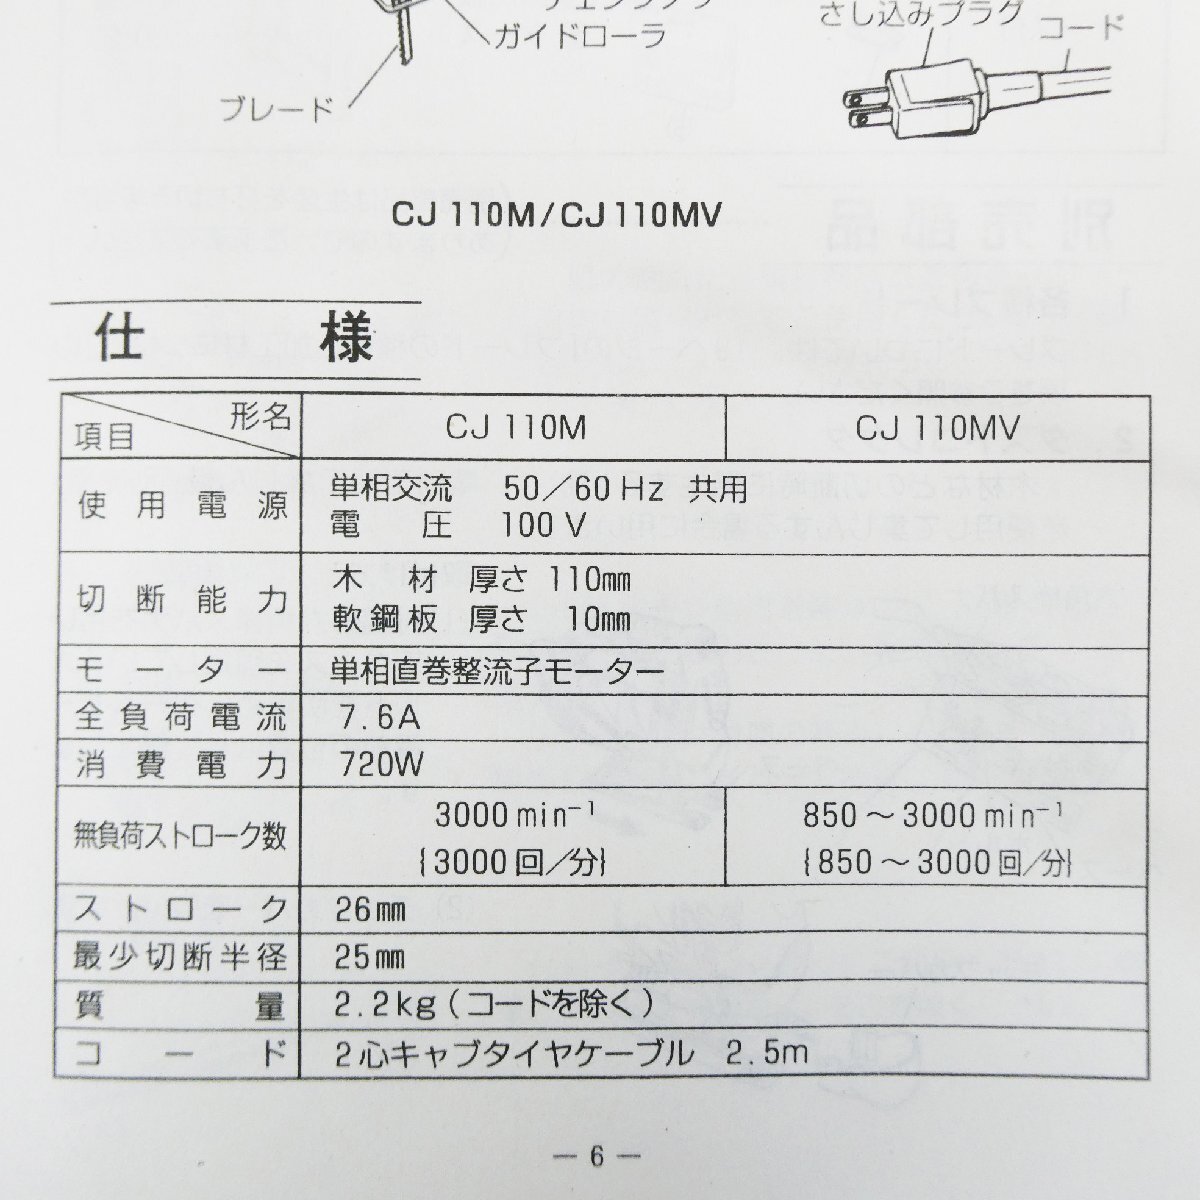 ガイドローラ
ブレード
さし込みプラグ
コード
CJ 110M/CJ 110MV
仕 様
形名
項目
CJ 110M
CJ 110MV
使用電源
単相交流 50／60 Hz 共用
電 圧 100 V
切断能力
木 材 厚さ 110㎜
軟鋼板 厚さ 10㎜
モーター
単相直巻整流子モーター
全負荷電流
7.6A
消費電力
720W
無負荷ストローク数
3000 min⁻¹
{3000 回／分}
850 ～ 3000 min⁻¹
{850 ～ 3000 回／分}
ストローク
26㎜
最少切断半径
25㎜
質 量
2.2kg (コードを除く)
コード
2心キャブタイヤケーブル 2.5m
— 6 —